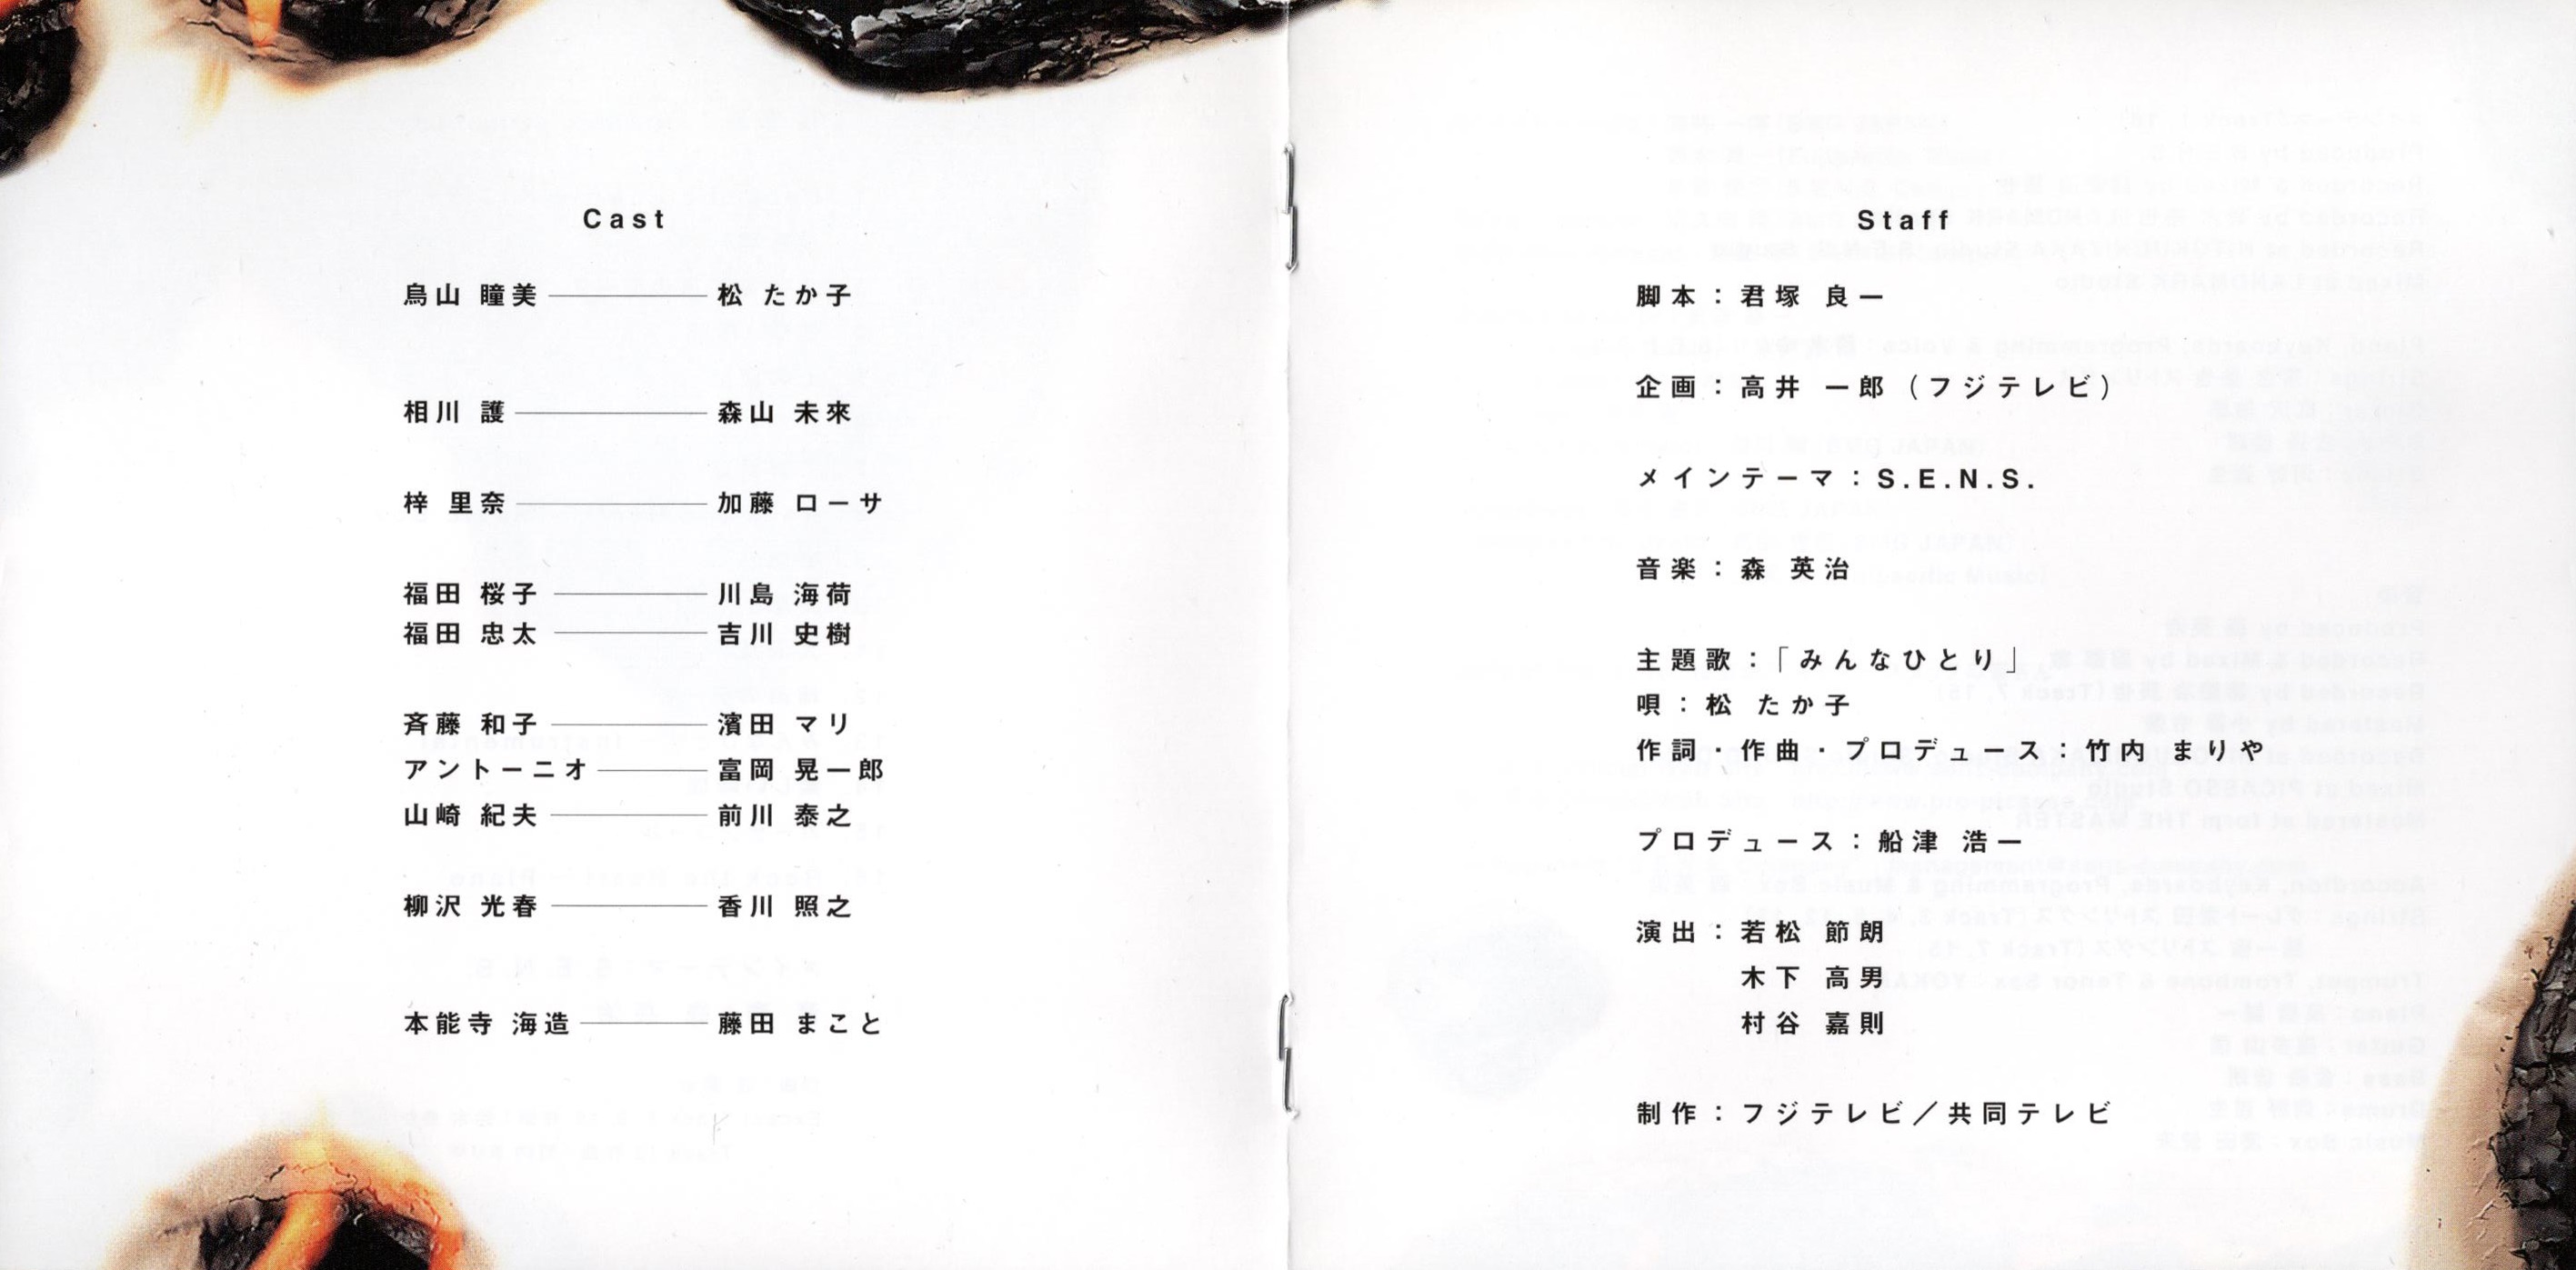 Cast
鳥山 瞳美 ― 松 たか子
相川 護 ― 森山 未來
梓 里奈 ― 加藤 ローサ
福田 桜子 ― 川島 海荷
福田 忠太 ― 吉川 史樹
斉藤 和子 ― 濱田 マリ
アントーニオ ― 富岡 晃一郎
山崎 紀夫 ― 前川 泰之
柳沢 光春 ― 香川 照之
本能寺 海造 ― 藤田 まこと
Staff
脚本：君塚 良一
企画：高井 一郎（フジテレビ）
メインテーマ：S.E.N.S.
音楽：森 英治
主題歌：「みんなひとり」
唄：松 たか子
作詞・作曲・プロデュース：竹内 まりや
プロデュース：船津 浩一
演出：若松 節朗
木下 高男
村谷 嘉則
制作：フジテレビ／共同テレビ